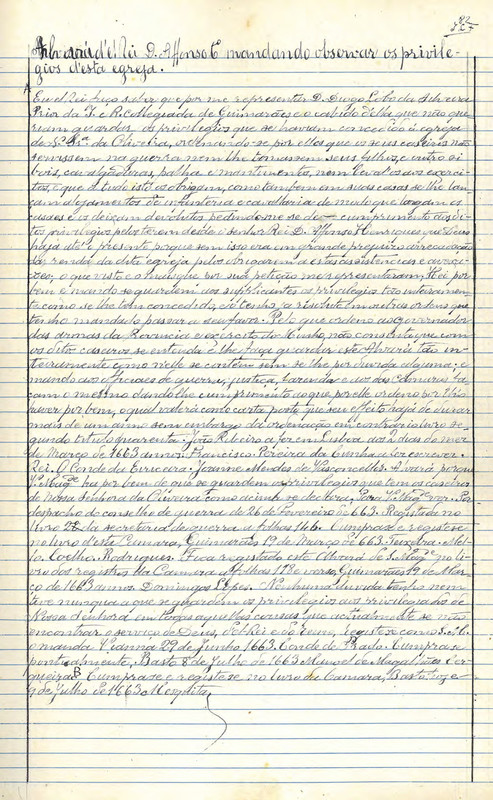 Alvará d'el Rei D. Affonso 6º mandando observar os privile-
gios d'esta egreja.
Eu el Rei faço saber que por me representar D. Diogo Lobo da Silveira
Prior da I. e R. Collegiada de Guimarães e o cabido d'ella que não que-
riam guardar os privilegios que se haviam concedido á egreja
de N. Srª da Oliveira, ordenando-se por elles que os seus caseiros não
servissem na guerra nem lhe tomassem seus filhos, e outro si
bois, cavalgaduras, palha e mantimentos, nem leval os aos exerci-
tos, e que a tudo isto os obrigam, como tambem em suas casas se lhe lan-
çam alojamentos de infanteria e cavallaria de modo que largam os
casaes e os deixam devolutos pedindo-me se dê cumprimento aos di-
tos privilegios pelos terem desde o senhor Rei D. Affonso Henriques que Deus
haja até o presente, porque sem isso era em grande prejuizo da recadação
das rendas da dita egreja pelos obrigarem a estas assistencias e avexa-
ção, o que visto e o mais que por sua petição me representaram. Hei por
bem e mando se guardem aos supplicantes os privilegios tão inteiramen-
te como se lhe tem concedido, e tenho já resoluto em outras ordens que
tenho mandado passar a seu favor. Pelo que ordeno ao Governador
das armas da Provincia e exercito do Minho, não consinta que com
os ditos caseiros se entenda e lhe faça guardar este Alvará tão in-
teiramente como n'elle se contém sem se lhe pôr duvida alguma; e
mando aos officiaes de guerra, justiça, fazenda e aos das Camaras fa-
çam o mesmo dando lhe cumprimento ao que por elle ordeno por o hei
haver por bem, o qual valerá como carta posto que seu effeito haja de durar
mais de um anno sem embargo da ordenação em contrario livro se-
gundo titulo quarenta. João Ribeiro a fez em Lisboa aos 2 dias do mez
de Março de 1663 annos. Francisco Pereira da Cunha a fez escrever.
Rei. O Conde da Ericeira. Joanne Mendes de Vasconcellos. Alvará porque
V. Magde ha por bem de que se guardem os privilegios que tem os caseiros
de Nossa Senhora da Oliveira como acima se declara. Para V. Magde ver. Por
despacho do conselho de guerra de 26 de Fevereiro de 663. Registado no
livro 27 da secretaria de guerra a folhas 146. Cumpra-se e registe-se
no livro d'esta Camara, Guimarães 19 de Março de 663. Teixeira. Mel-
lo. Coelho. Rodrigues. Fica registado este Alvará de S. Magde no li-
vro dos registos da Camara a folhas 112 e verso, Guimarães 19 de Mar-
ço de 1663 annos. Domingos Lopes. Nenhuma duvida tenho nem
tive nunca a que se guardem os privilegios aos privilegiados de
Nossa Senhora em todas aquellas cousas que actualmente se não
encontrar o serviço de Deus, d'el-Rei e do Reino, registe-se como S. M.
o manda. Vianna 29 de Junho 1663. Conde de Prado. Cumpra-se
pontualmente, Basto 8 de Julho de 1663 Manoel de Magalhães Cer-
queira. Cumpra-se e registe-se no livro da Camara, Basto hoje
9 de Julho de 1663 Mesquita